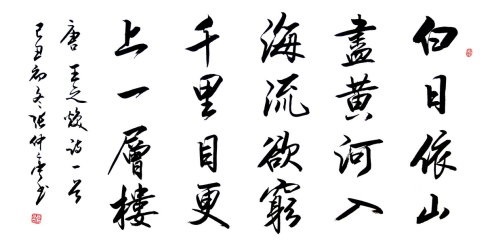 白日依山
盡黄河入
海流欲窮
千里目更
上一層樓
唐 王之涣诗一首
己丑初冬张仲亭书